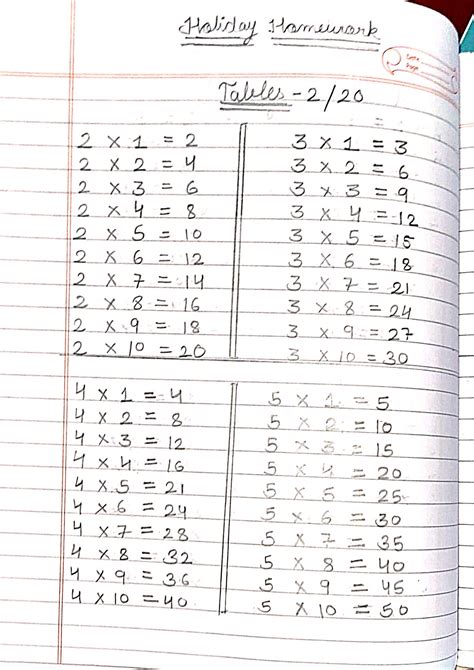 Holiday Homework
Date
Page
Tables - 2/20
2 × 1 = 2
2 × 2 = 4
2 × 3 = 6
2 × 4 = 8
2 × 5 = 10
2 × 6 = 12
2 × 7 = 14
2 × 8 = 16
2 × 9 = 18
2 × 10 = 20
3 × 1 = 3
3 × 2 = 6
3 × 3 = 9
3 × 4 = 12
3 × 5 = 15
3 × 6 = 18
3 × 7 = 21
3 × 8 = 24
3 × 9 = 27
3 × 10 = 30
4 × 1 = 4
4 × 2 = 8
4 × 3 = 12
4 × 4 = 16
4 × 5 = 21
4 × 6 = 24
4 × 7 = 28
4 × 8 = 32
4 × 9 = 36
4 × 10 = 40
5 × 1 = 5
5 × 2 = 10
5 × 3 = 15
5 × 4 = 20
5 × 5 = 25
5 × 6 = 30
5 × 7 = 35
5 × 8 = 40
5 × 9 = 45
5 × 10 = 50